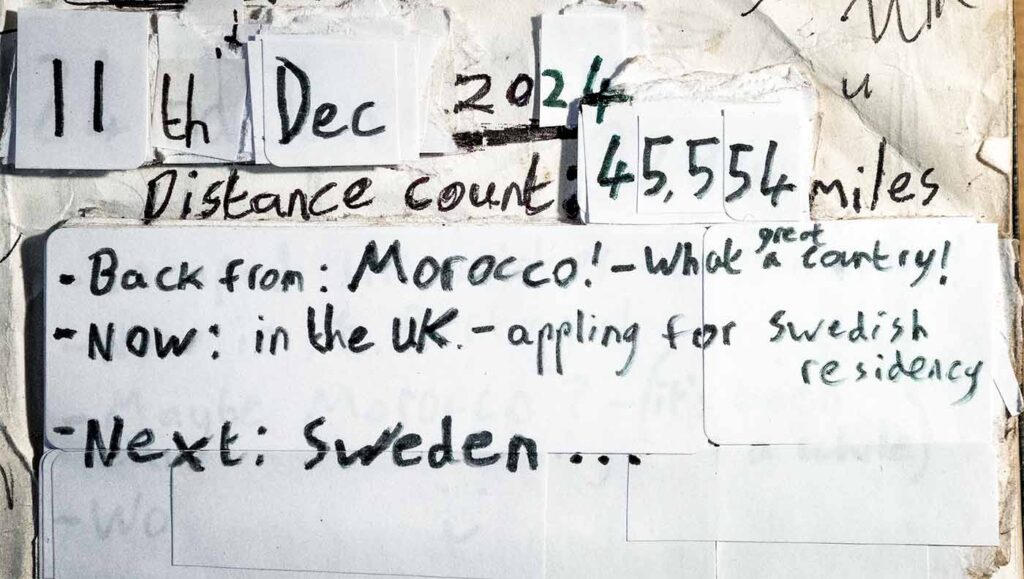 11 th Dec 2024
Distance count: 45,554 miles
- Back from: Morocco! - What a great country!
- Now: in the UK. - appling for Swedish
residency
- Next: Sweden ...